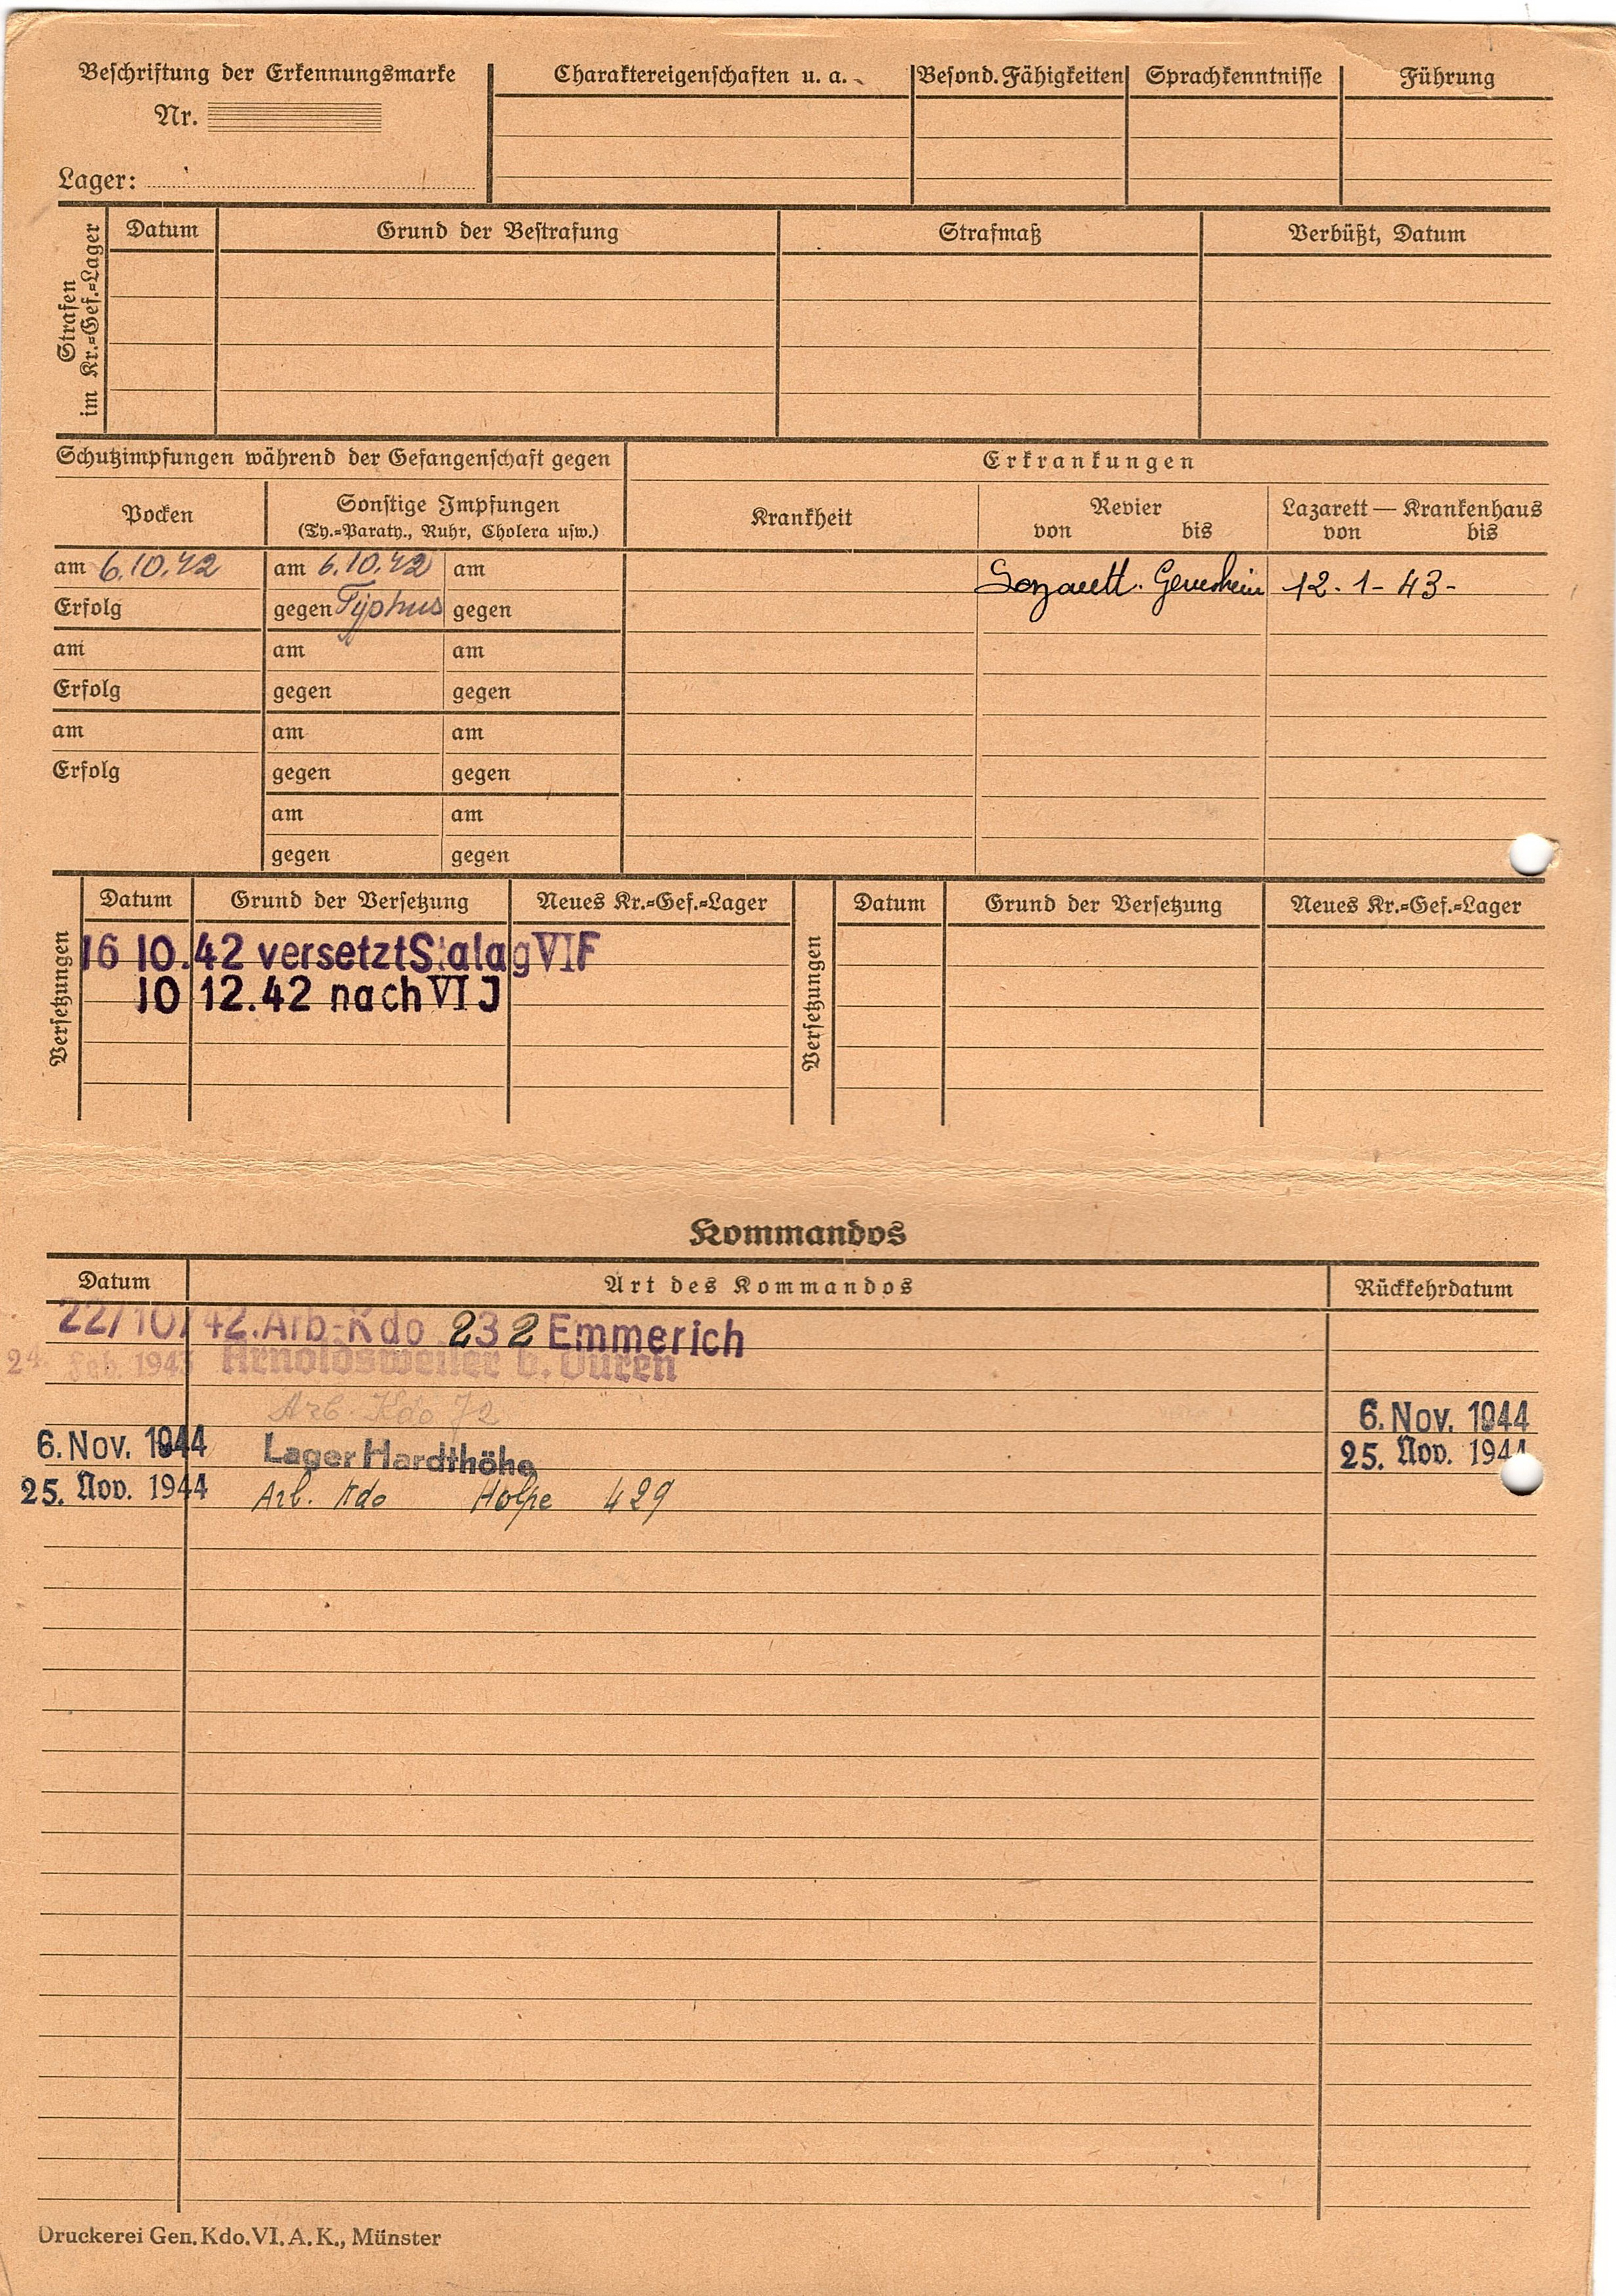 Beschriftung der Erkennungsmarke
Nr.
Lager:
Charaktereigenschaften u. a.
Besond. Fähigkeiten
Sprachkenntnisse
Führung
Strafen
im Kr.=Gef.=Lager
Datum
Grund der Bestrafung
Strafmaß
Verbüßt, Datum
Schutzimpfungen während der Gefangenschaft gegen
Erkrankungen
Pocken
Sonstige Impfungen
(Ty.=Paraty., Ruhr, Cholera usw.)
Krankheit
Revier
von bis
Lazarett — Krankenhaus
von bis
am 6.10.42 am 6.10.42 am
Erfolg gegen Typhus gegen
Lazarett. 12-1-43-
am am am
Erfolg gegen gegen
am am am
Erfolg gegen gegen
am am
gegen gegen
Versetzungen
Datum Grund der Versetzung Neues Kr.=Gef.=Lager
16 10.42 versetzt Stalag VI F
10 12.42 nach VI J
Versetzungen
Datum Grund der Versetzung Neues Kr.=Gef.=Lager
Kommandos
Datum Art des Kommandos Rückkehrdatum
22/10/42. Arb-Kdo 232 Emmerich
24. Feb. 1943 Arnoldsweiler b. Düren
Arb. Kdo 72 6. Nov. 1944
6. Nov. 1944 Lager Hardthöhe 25. Nov. 1944
25. Nov. 1944 Arb. Kdo Holpe 429
Druckerei Gen. Kdo. VI. A. K., Münster